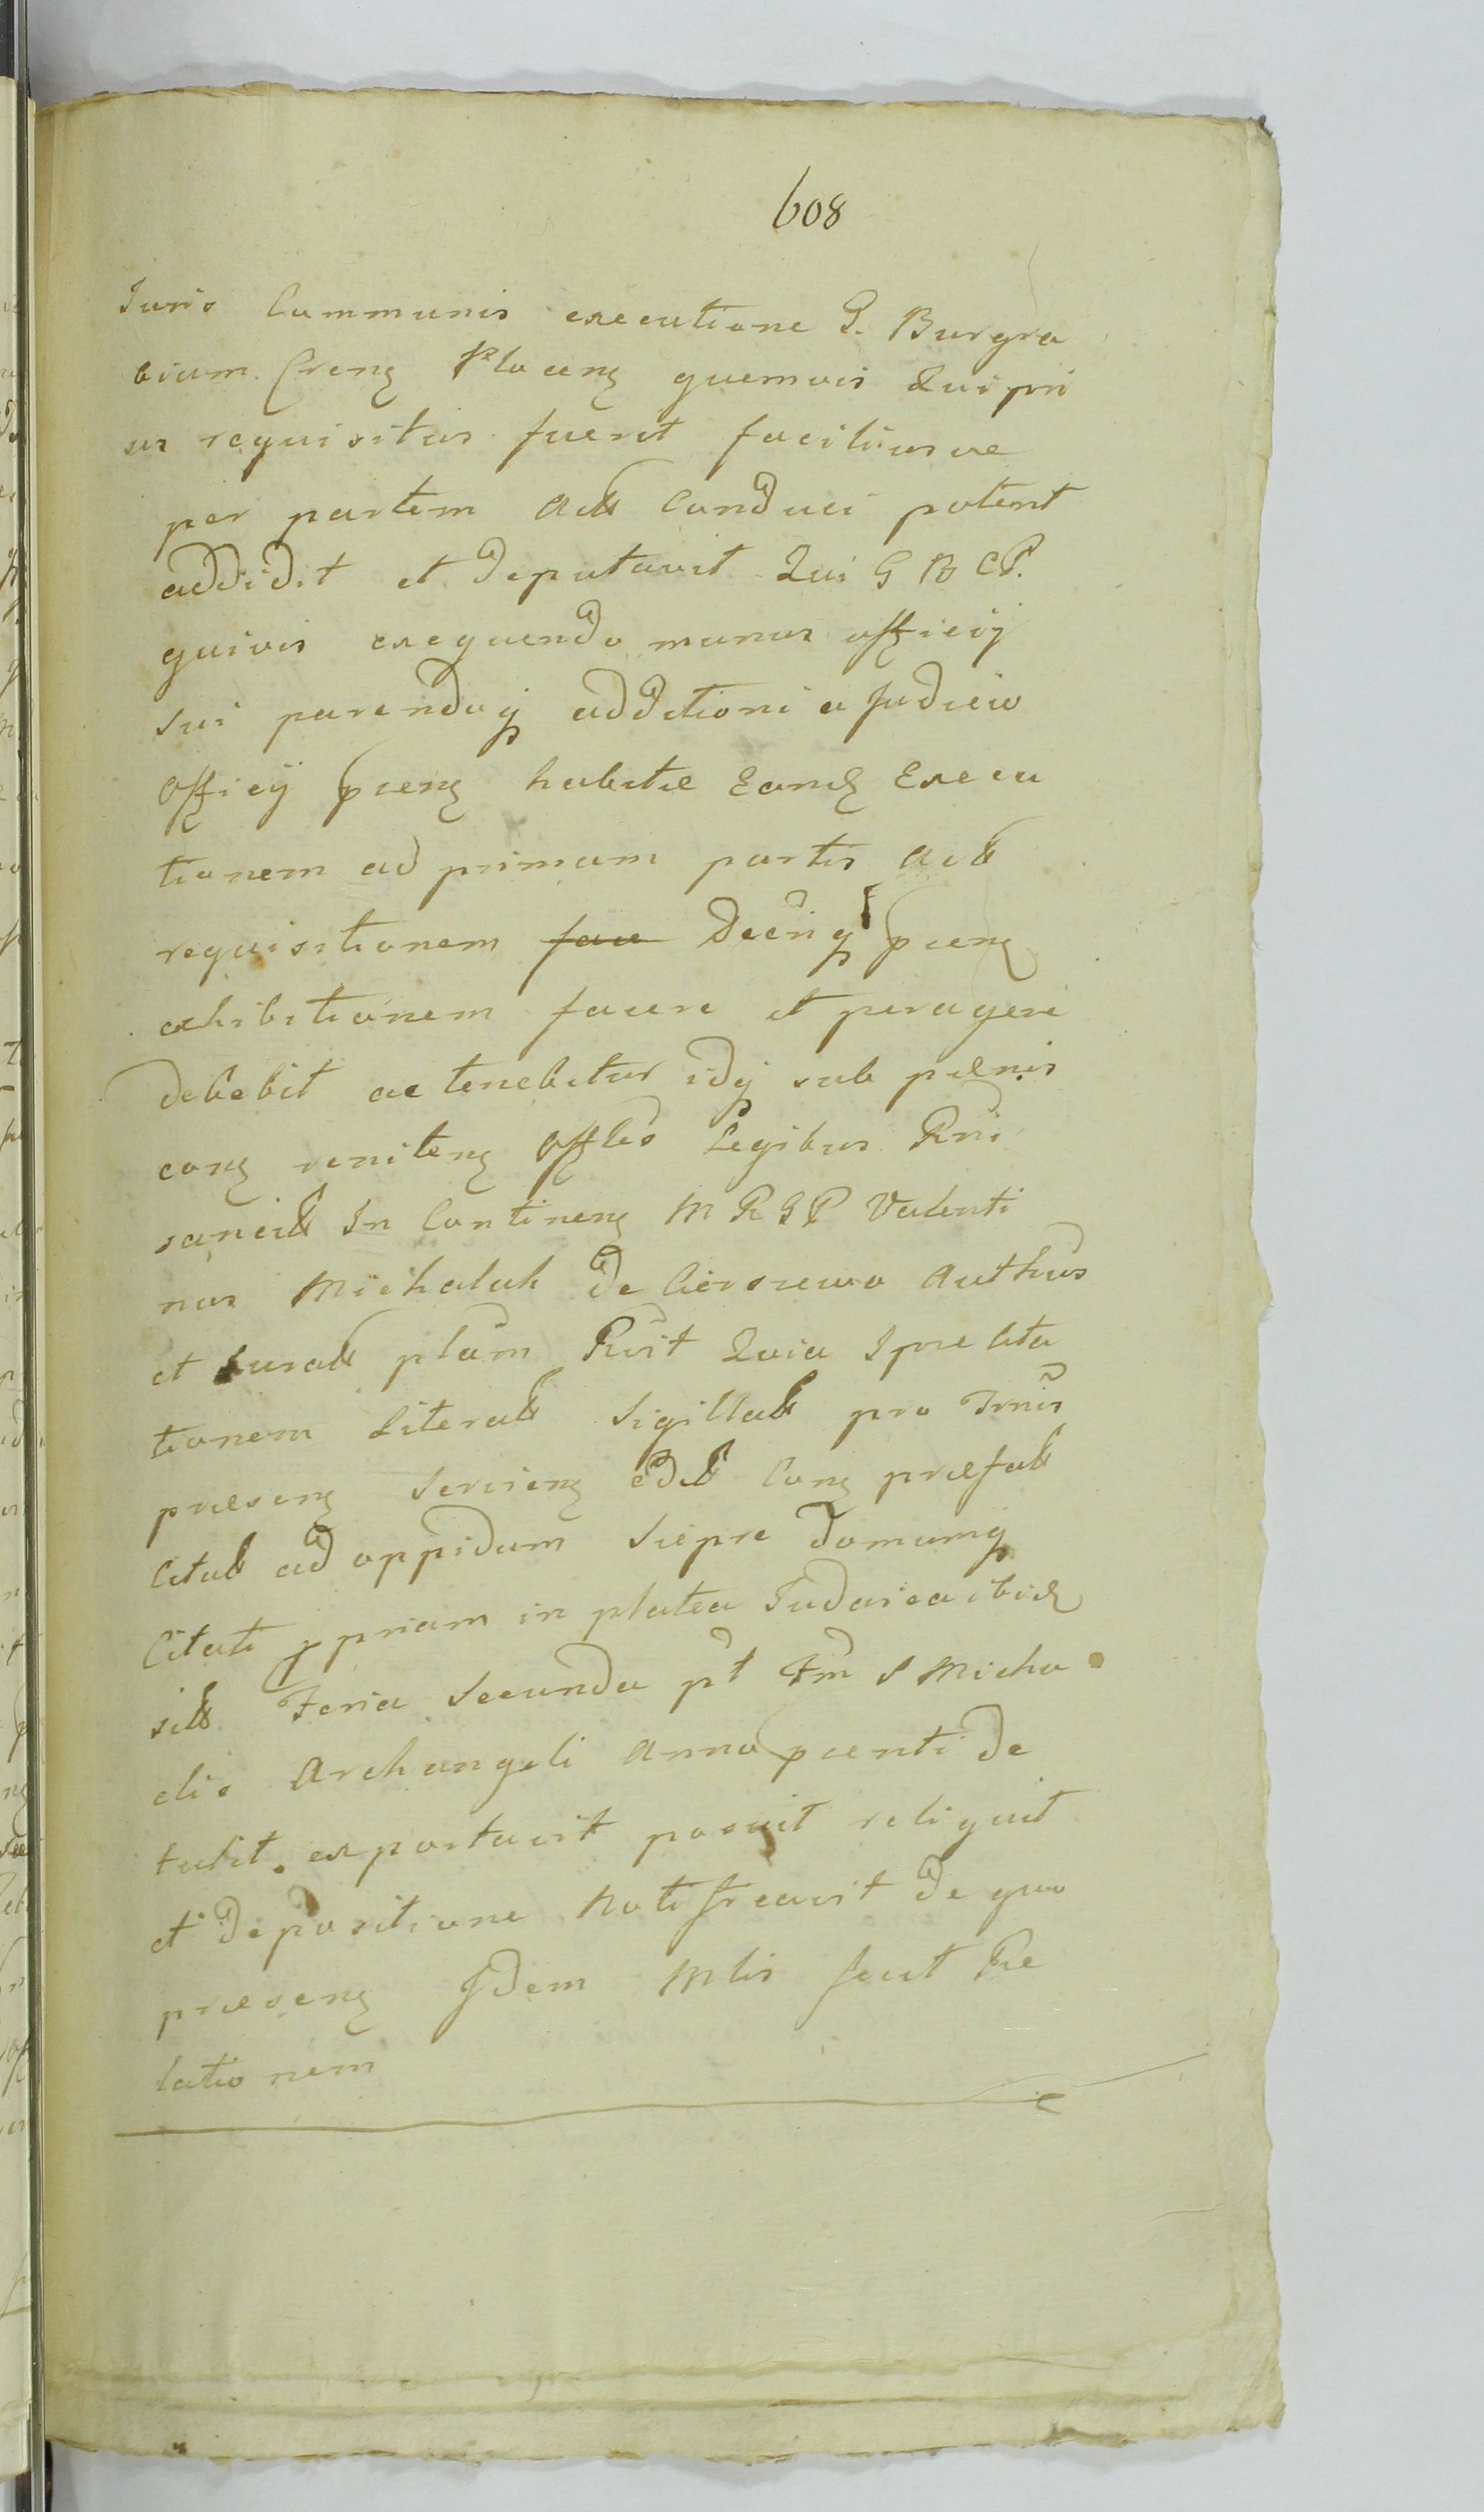 608
Juris Communis executione G. Burgra
bium Crenẜ Plocenẜ quemvis Qui pri
us requisitus fuerit faciliusve
per partem Act conduci poterit
addidit et deputavit Qui G B C P.
quivis exequendo munus officij
sui parendoqȝ additioni a Judicio
officij pᵈcenẜ habitæ Eandẜ Execu
tionem ad primam partis Act
requisitionem Decriqȝ pᵈcenẜ
exhibitionem facere et peragere
debebit ac tenebitur idqȝ sub pænis
conẜ renitenẜ Offles Legibus Rni
sancit In Continenẜ M R G P Valenti
nus Michalak de Cierszewo Authus
et Jurat plam Rvit Quia
tionem Literat Sigillat pro Trnis
præsenẜ Servienẜ edit Conẜ præfat
Citat ad oppidum Siepre domumqȝ
Citati ppriam in platea Judaica ibidẜ
sit Feria Secunda pt Ftm S Micha
elis Archangeli Anno pᵈcenti de
tulit exportavit posuit reliquit
et depositione Notificavit de quo
præsenẜ Idem Mlis fecit Re
lationem